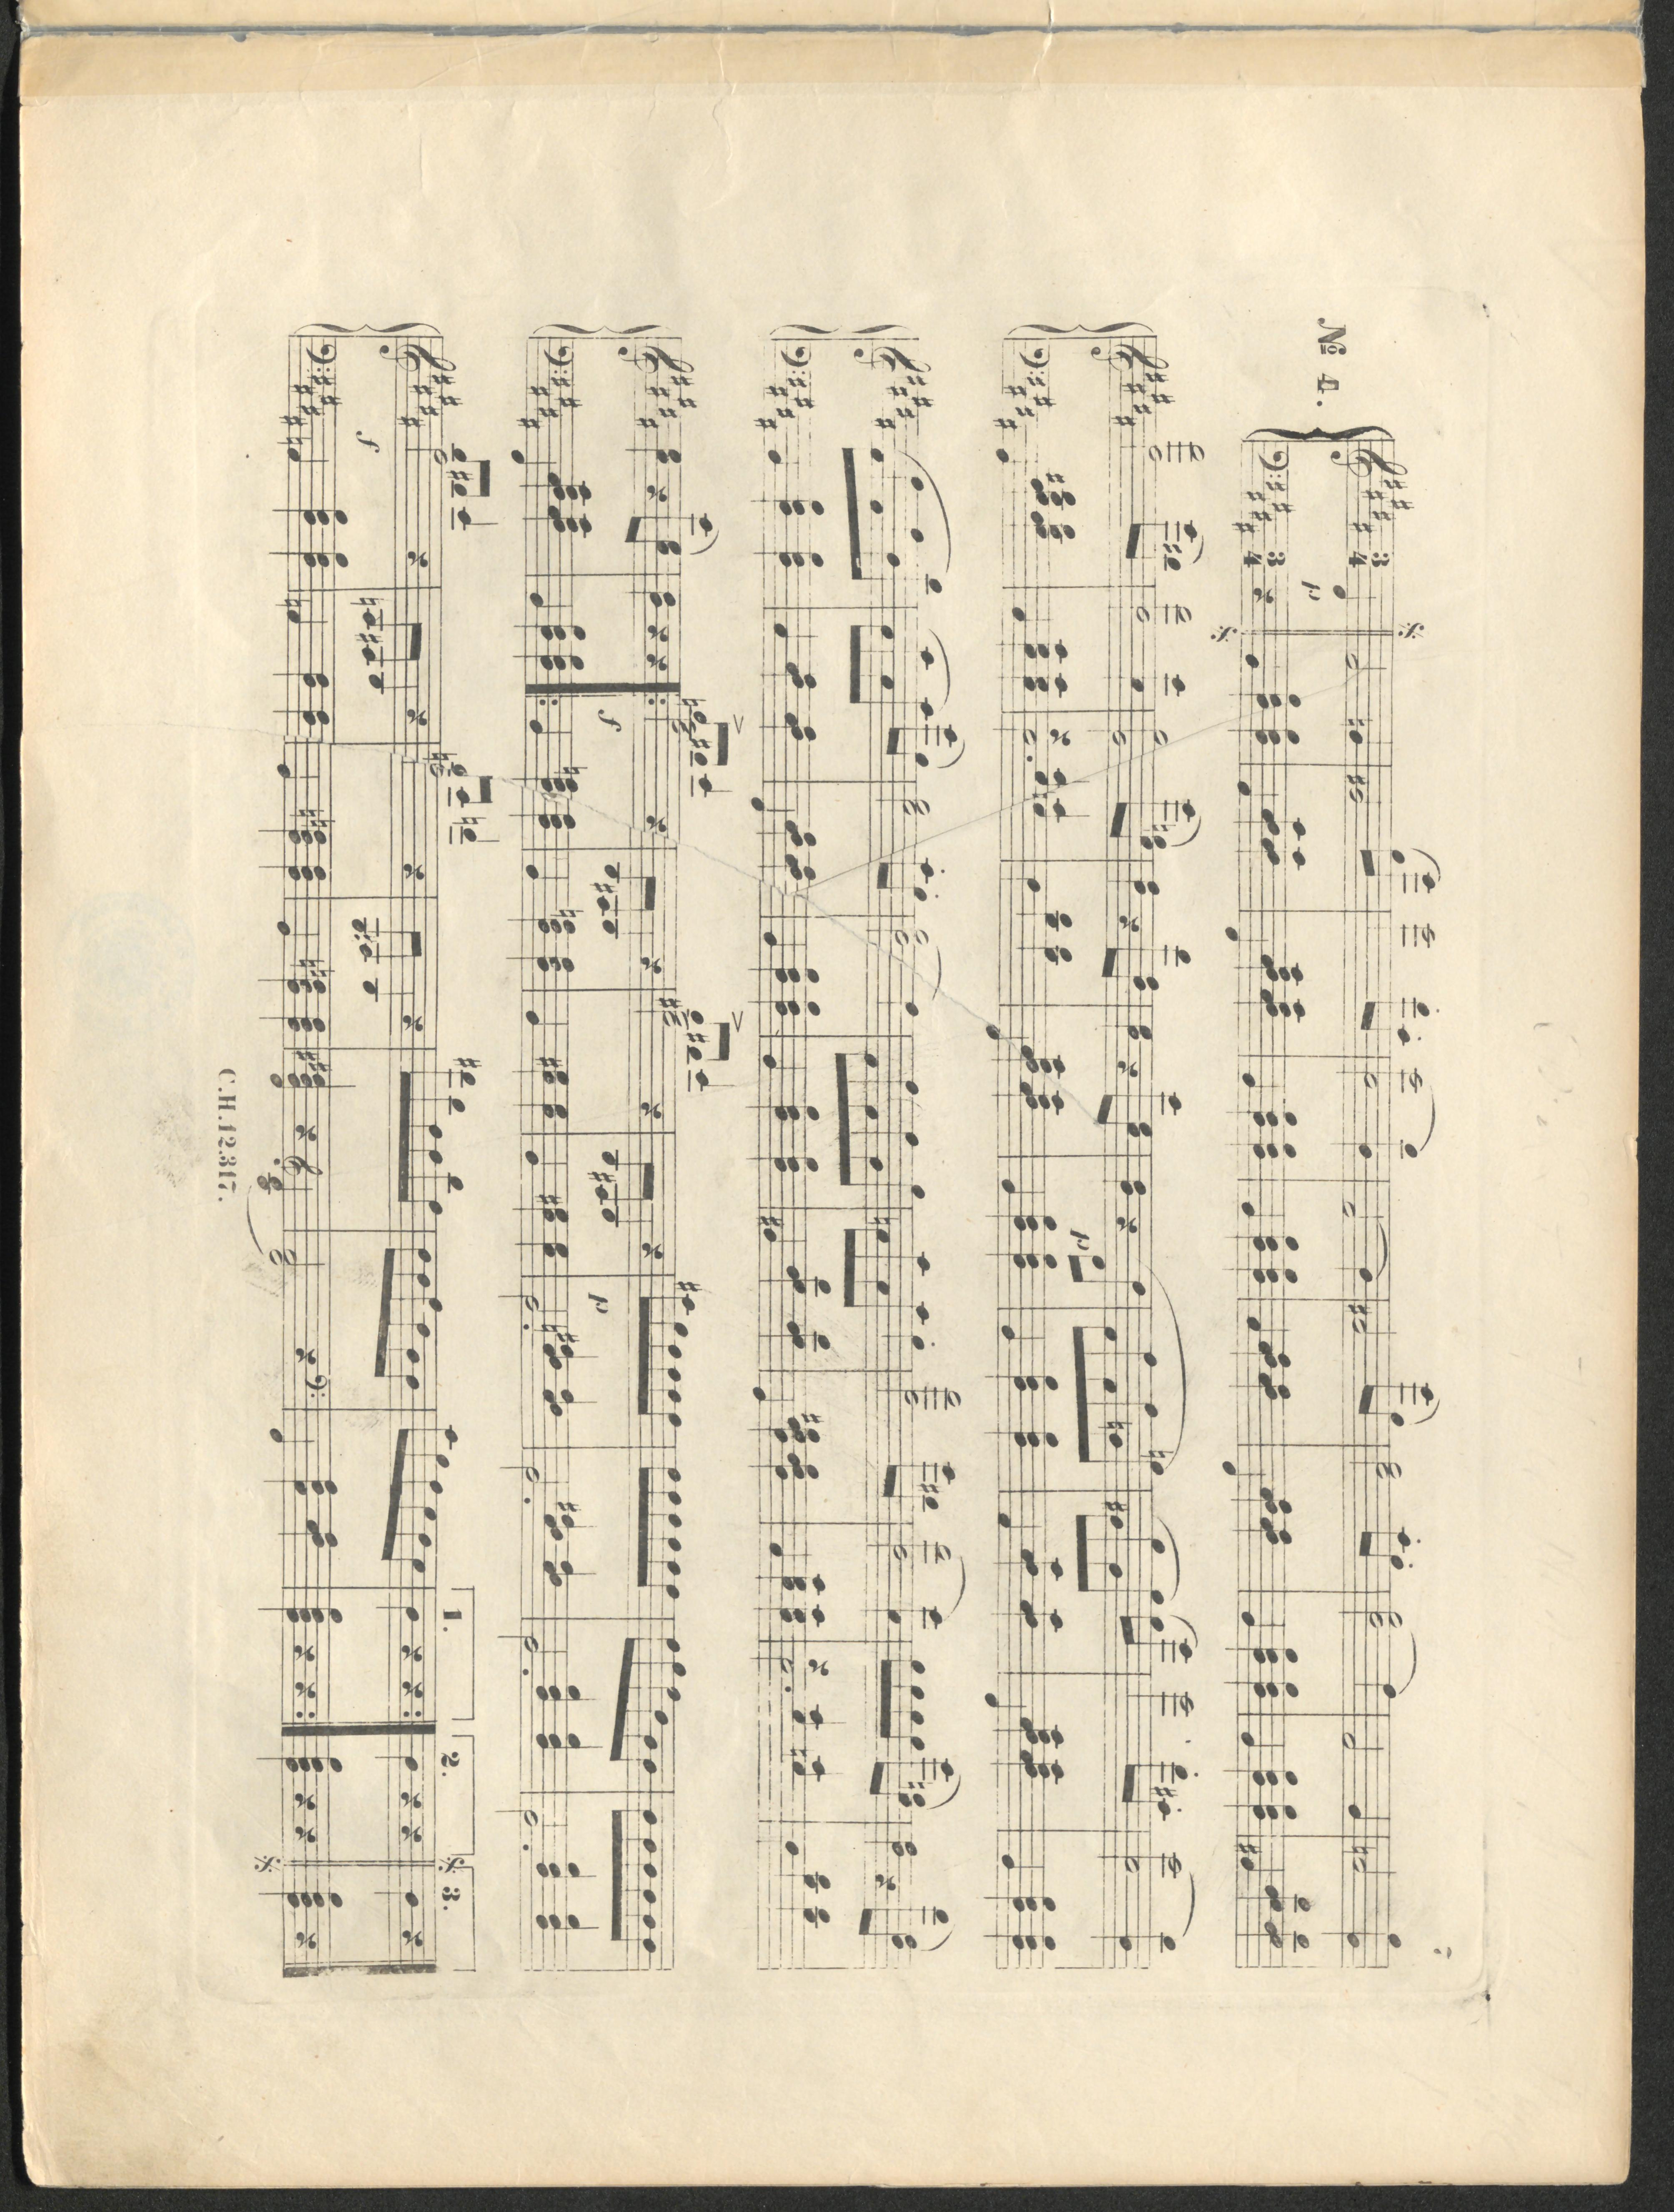 Nº 4.
3 4
p
3 4
p
f
p
f
1. 2. 3.
C.H.12.317.